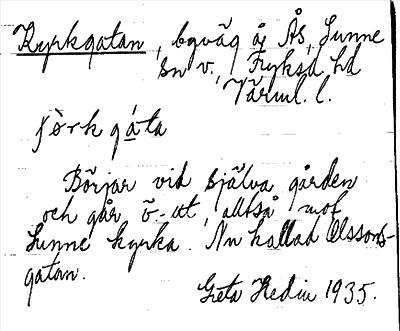 Kyrkgatan, bgväg å Ås, Sunne
sn v., Fryksd. hd
Värml. l.
Börjar vid själva gården
och går ö-ut, alltså mot
Sunne kyrka. Nu kallad Olssons-
gatan.
Greta Hedin 1935.